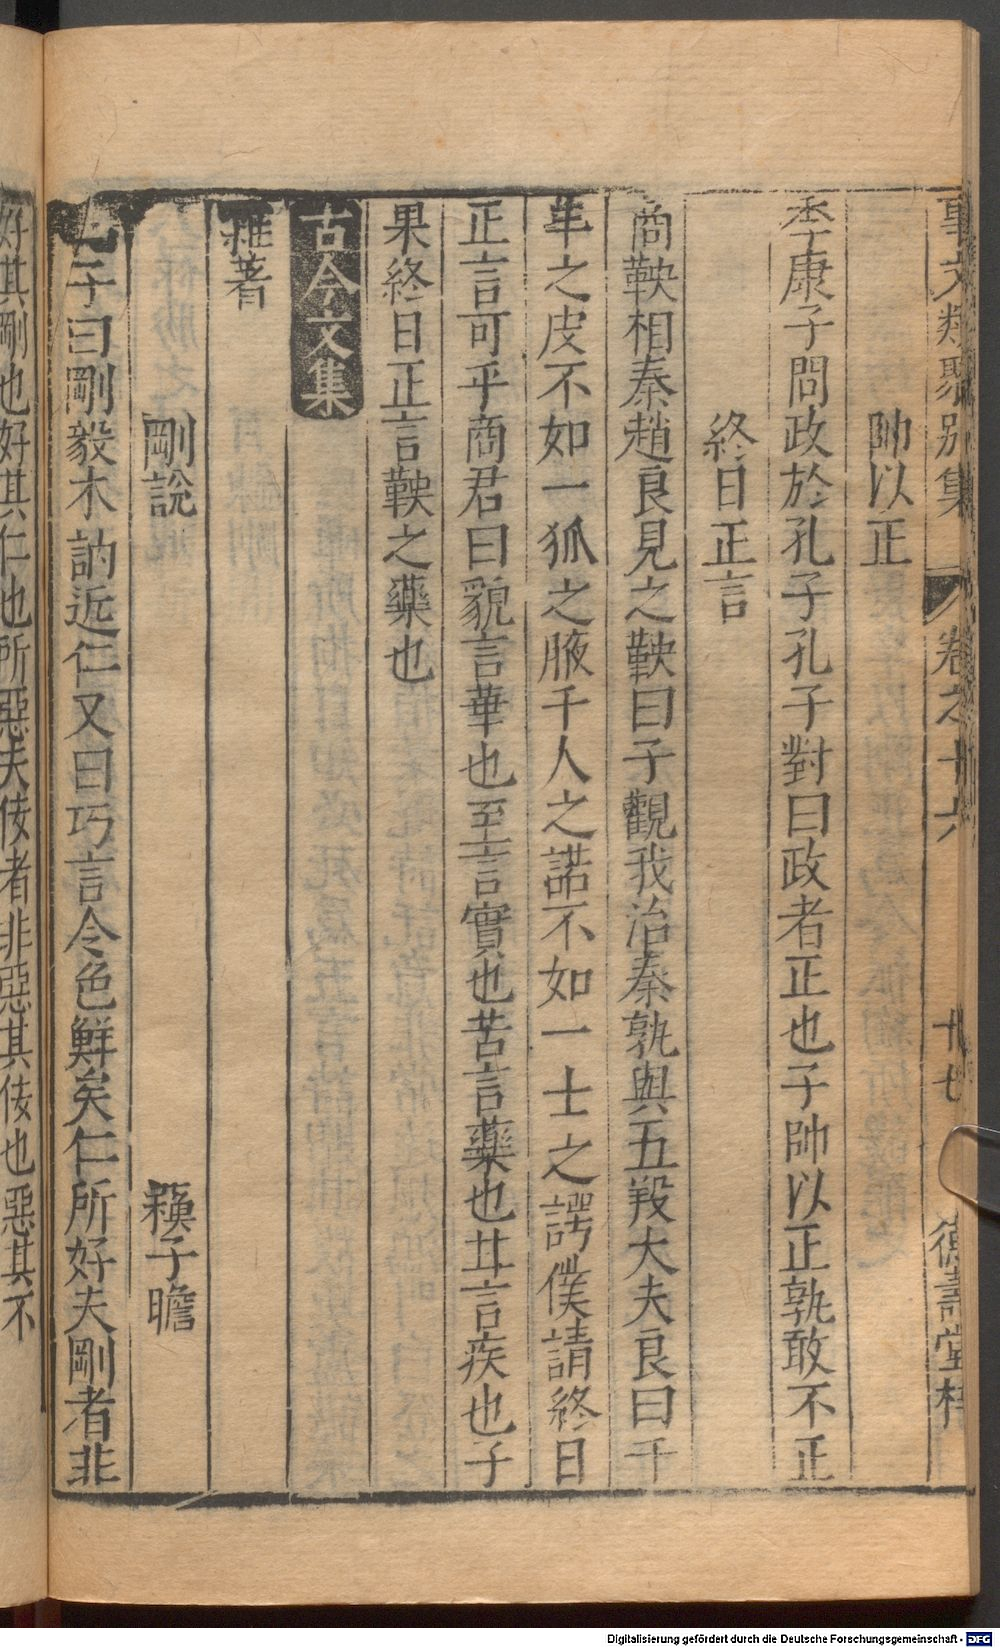 事文類聚別集 卷之十六 十七 德壽堂梓
帥以正
季康子問政於孔子孔子對曰政者正也子帥以正孰敢不正
終日正言
商鞅相秦趙良見之鞅曰子觀我治秦孰與五羖大夫良曰千
羊之皮不如一狐之腋千人之諾不如一士之諤僕請終日
正言可乎商君曰貌言華也至言實也苦言藥也甘言疾也子
果終日正言鞅之藥也
古今文集
雜著
剛說 蘓子瞻
孔子曰剛毅木訥近仁又曰巧言令色鮮矣仁所好夫剛者非
好其剛也好其仁也所惡夫佞者非惡其佞也惡其不
Digitalisierung gefördert durch die Deutsche Forschungsgemeinschaft - DFG